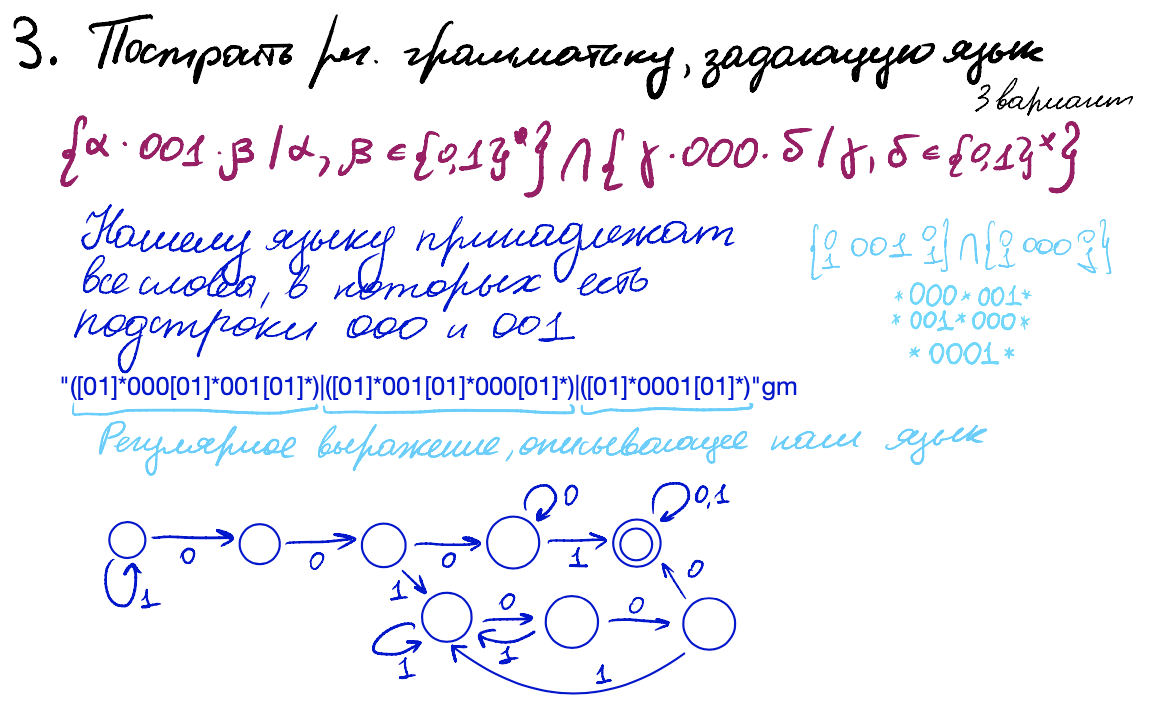 3. Построить рег. грамматику, задающую язык
3 вариант
{α · 001 · β / α, β ∈ {0,1}*} ∩ {γ · 000 · δ / γ, δ ∈ {0,1}*}
Нашему языку принадлежат
все слова, в которых есть
подстроки 000 и 001
{0 1 001 0 1} ∩ {0 1 000 0 1}
*000*001*
*001*000*
*0001*
"([01]*000[01]*001[01]*)|([01]*001[01]*000[01]*)|([01]*0001[01]*)"gm
Регулярное выражение, описывающее наш язык
0 0,1
0 0 0 1
1 1 0 0 0
1 1 1